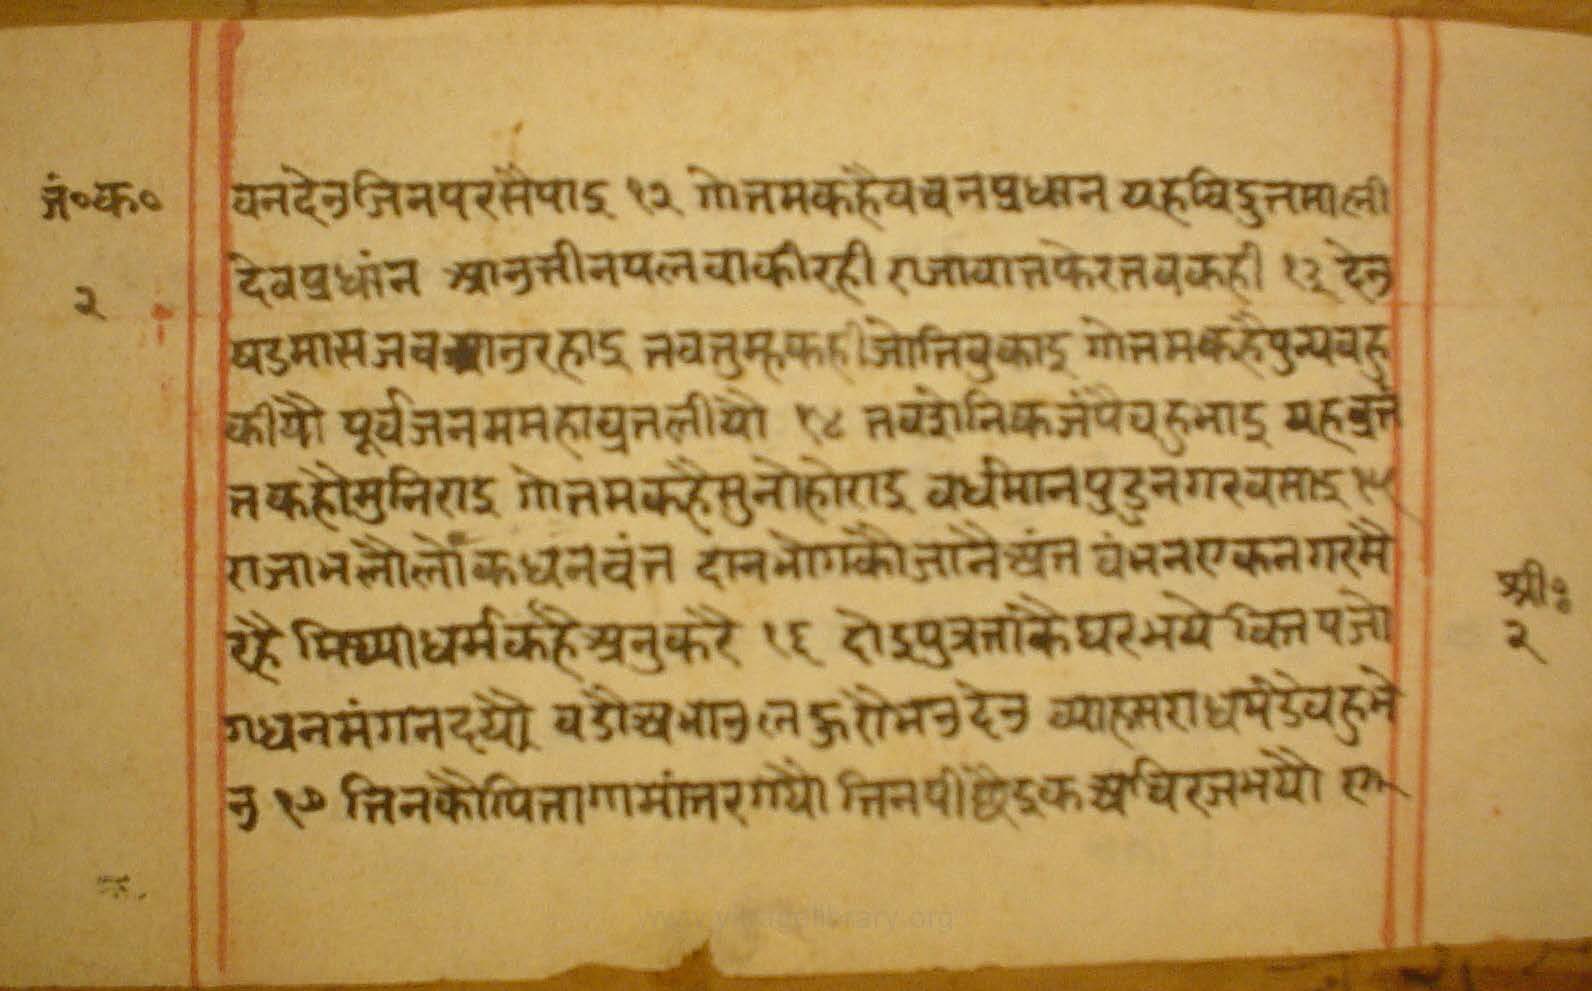 जं॰क॰
२
वनदेउजिनपरसैपाइ १२ गोतमकहैवचनप्रधान यहविदुतमाली
देवप्रधांन आउतीनपलवाकीरही राजावातफेरतवकही १३ देउ
षडमासजवआउरहाइ तवतुम्हकहीजोतिवुकाइ गोतमकहैपुन्यवहु
कीयौ पूर्वजनममहाव्रतलीयौ १४ तवश्रेनिकजंपैवहुभाइ यहव्रत
तकहोमुनिराइ गोतमकहैसुनोहोराइ वर्धमानपुरुनगरवसाइ १५
राजाभलौलोकधनवंत दानभोगकौजानैअंत वंभनएकनगरमै
रहै मिथ्याधर्मकहैअनुकरै १६ दोइपुत्रताकैघरभये वितपजो
गधनमंगनदयौ वडौअभाउ व्याहसराधमैडेवहुभे
उ १७ तिनकौपितागामांतरगयौ तिनपीछैइकअचिरजभयौ
श्री॰
२
www.yjf.jainlibrary.org